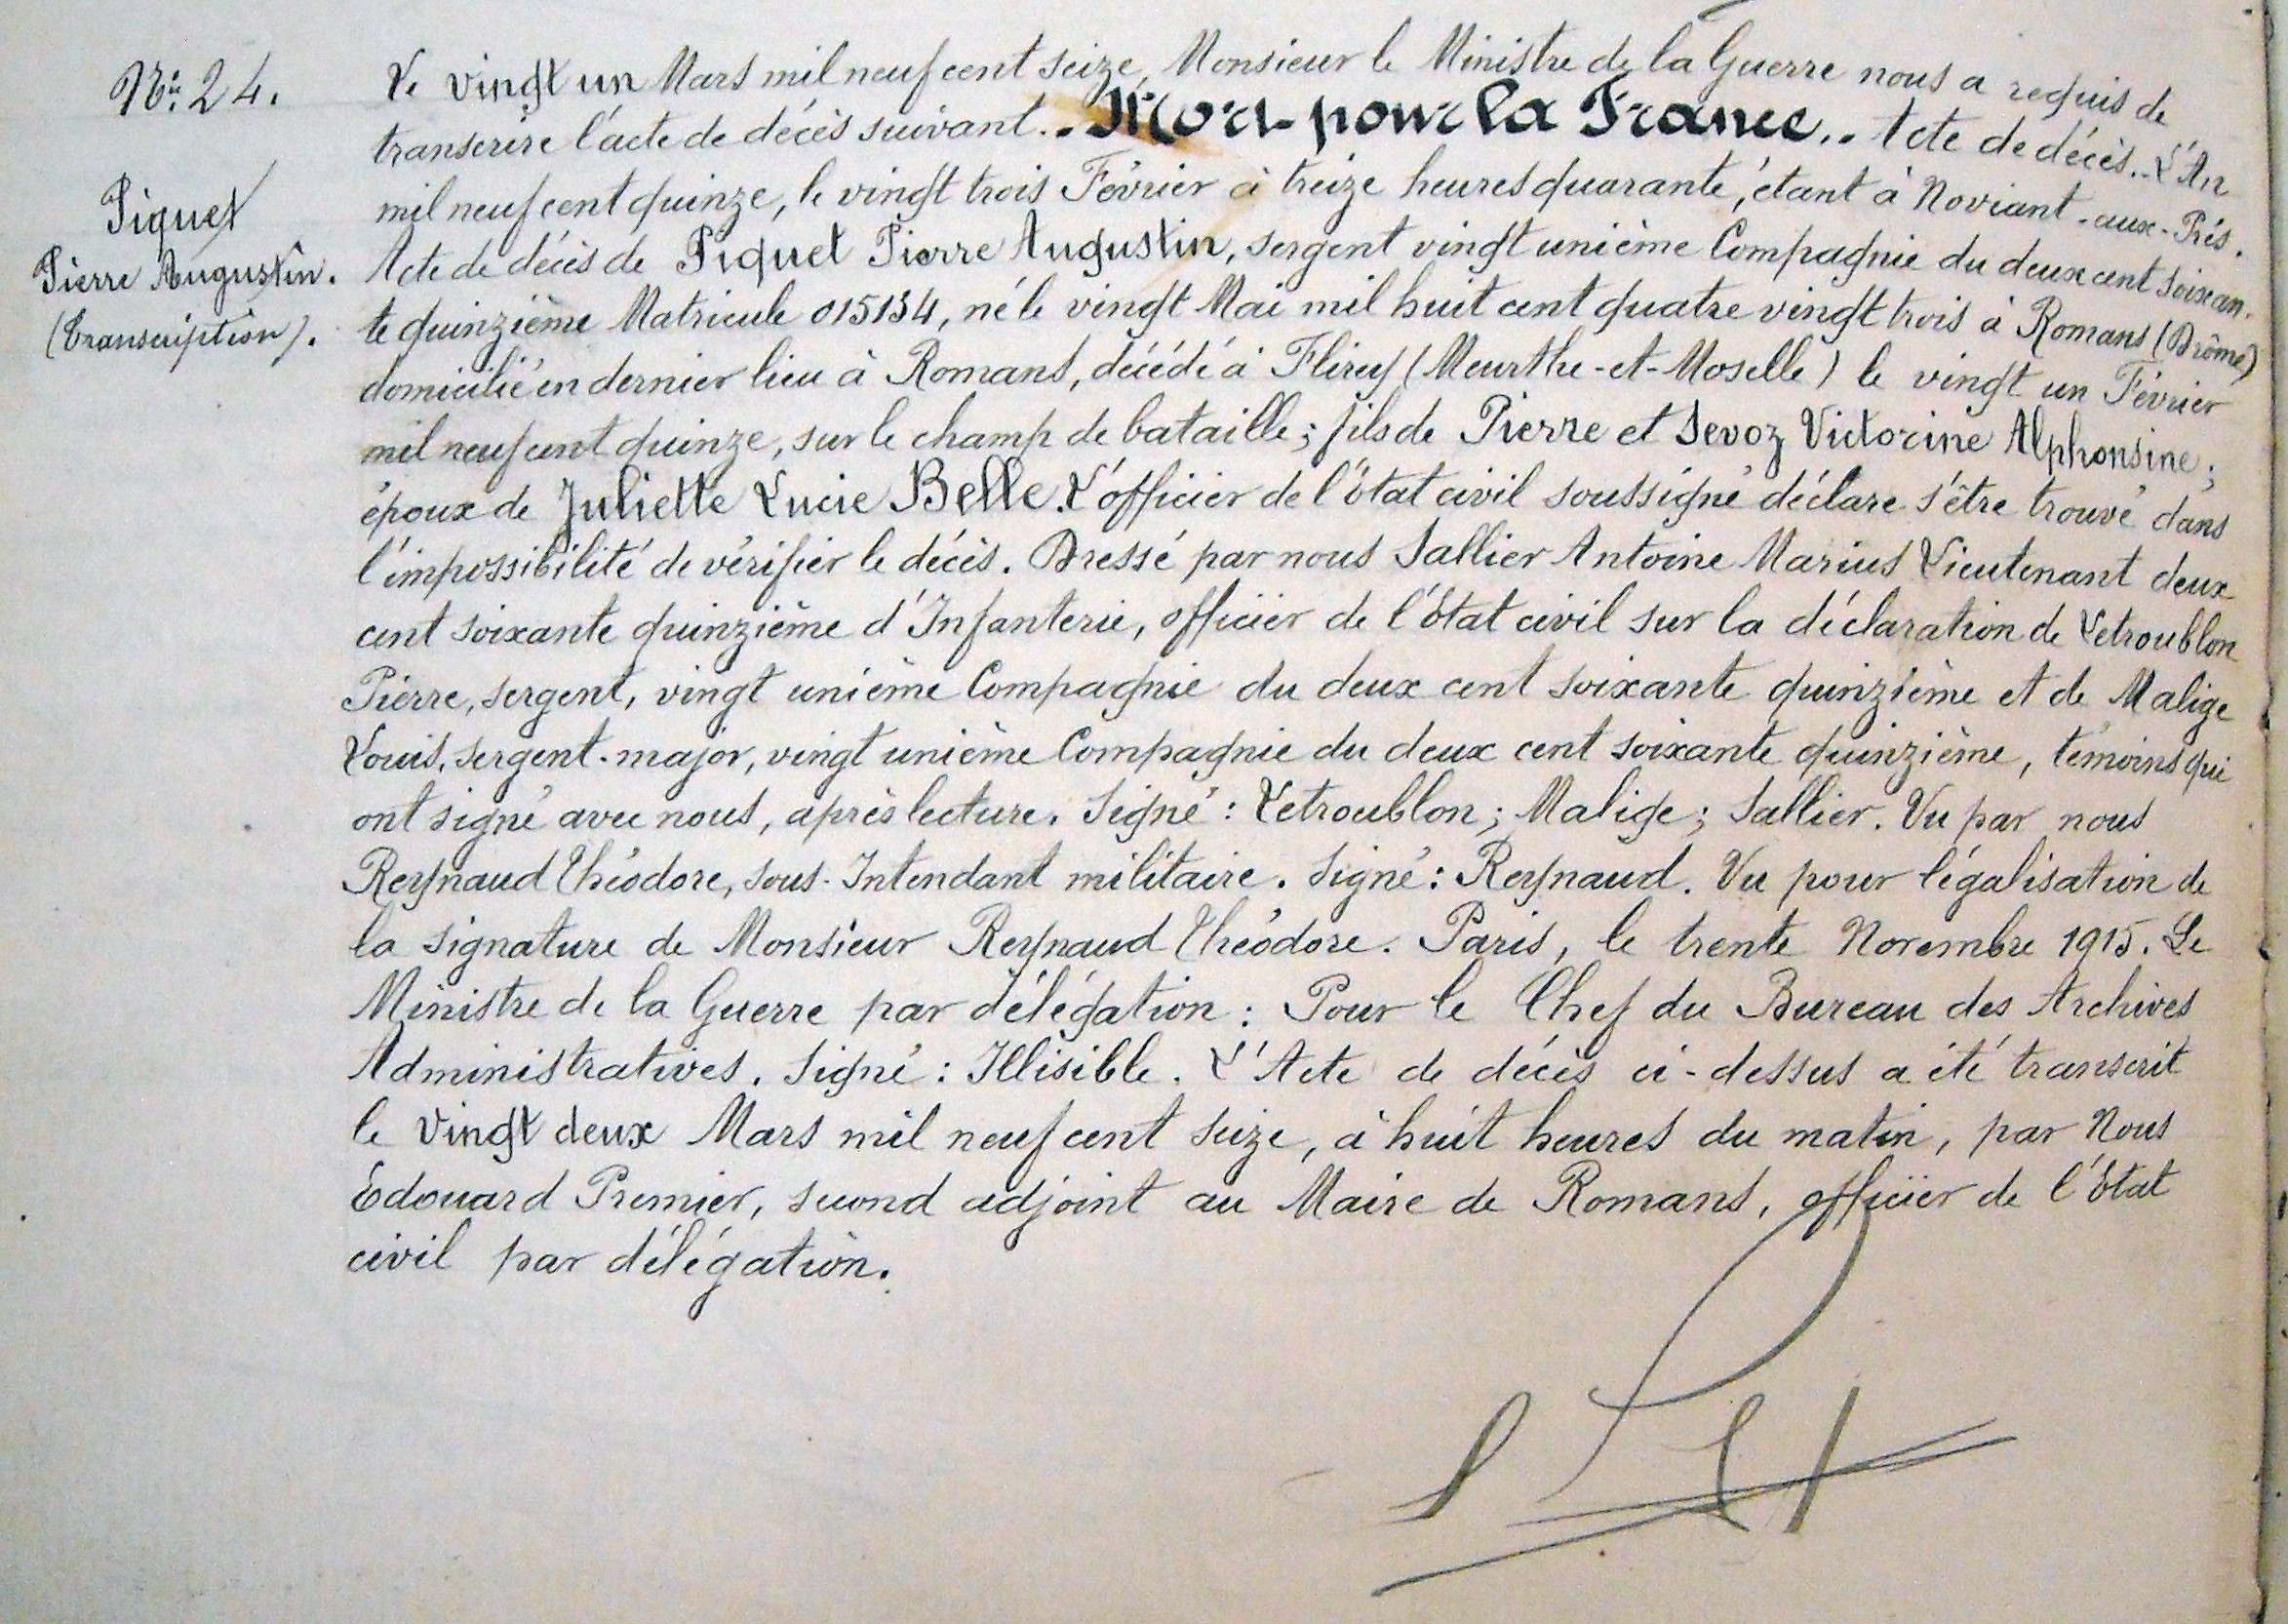 N° 24.
Piquet
Pierre Augustin.
(Transcription).
Le vingt un Mars mil neuf cent seize, Monsieur le Ministre de la Guerre nous a requis de
transcrire l'acte de décès suivant.. Mort pour la France.. Acte de décès.. L'An
mil neuf cent quinze, le vingt trois Février à treize heures quarante, étant à Noviant-aux-Prés.
Acte de décès de Piquet Pierre Augustin, sergent vingt unième Compagnie du deux cent soixan-
te quinzième Matricule 015134, né le vingt Mai mil huit cent quatre vingt trois à Romans (Drôme)
domicilié en dernier lieu à Romans, décédé à Flirey (Meurthe-et-Moselle) le vingt un Février
mil neuf cent quinze, sur le champ de bataille; fils de Pierre et Sevoz Victorine Alphonsine;
époux de Juliette Lucie Belle. L'officier de l'état civil soussigné déclare s'être trouvé dans
l'impossibilité de vérifier le décès. Dressé par nous Sallier Antoine Marius Lieutenant deux
cent soixante quinzième d'Infanterie, officier de l'état civil sur la déclaration de Letroublon
Pierre, sergent, vingt unième Compagnie du deux cent soixante quinzième et de Malige
Louis, sergent-major, vingt unième Compagnie du deux cent soixante quinzième, témoins qui
ont signé avec nous, après lecture. Signé: Letroublon; Malige; Sallier. Vu par nous
Reynaud Théodore, sous-Intendant militaire. Signé: Reynaud. Vu pour légalisation de
la signature de Monsieur Reynaud Théodore. Paris, le trente Novembre 1915. Le
Ministre de la Guerre par délégation: Pour le Chef du Bureau des Archives
Administratives. Signé: Illisible. L'Acte de décès ci-dessus a été transcrit
le vingt deux Mars mil neuf cent seize, à huit heures du matin, par Nous
Edouard Premier, second adjoint au Maire de Romans, officier de l'état
civil par délégation.